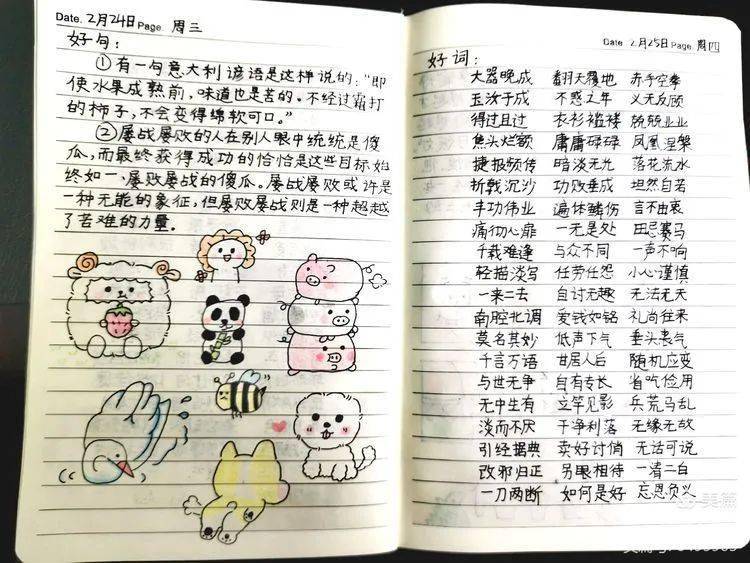 Date. 2月24日 Page. 周三
好句：
①有一句意大利谚语是这样说的："即
使水果成熟前，味道也是苦的。不经过霜打
的柿子，不会变得绵软可口。"
②屡战屡败的人在别人眼中统统是傻
瓜，而最终获得成功的恰恰是这些目标始
终如一、屡败屡战的傻瓜。屡战屡败或许是
一种无能的象征，但屡败屡战则是一种超越
了苦难的力量。
Date. 2月25日 Page. 周四
好词：
大器晚成 翻天覆地 赤手空拳
玉汝于成 不惑之年 义无反顾
得过且过 衣衫褴褛 兢兢业业
焦头烂额 庸庸碌碌 凤凰涅槃
捷报频传 暗淡无光 落花流水
折戟沉沙 功败垂成 坦然自若
丰功伟业 遍体鳞伤 言不由衷
痛彻心扉 一无是处 田忌赛马
千载难逢 与众不同 一声不响
轻描淡写 任劳任怨 小心谨慎
一来二去 自讨无趣 无法无天
南腔北调 爱钱如铭 礼尚往来
莫名其妙 低声下气 垂头丧气
千言万语 甘居人后 随机应变
与世无争 自有专长 省吃俭用
无中生有 立竿见影 兵荒马乱
淡而不厌 干净利落 无缘无故
引经据典 卖好讨俏 无话可说
改邪归正 另眼相待 一清二白
一刀两断 如何是好 忘恩负义
美篇